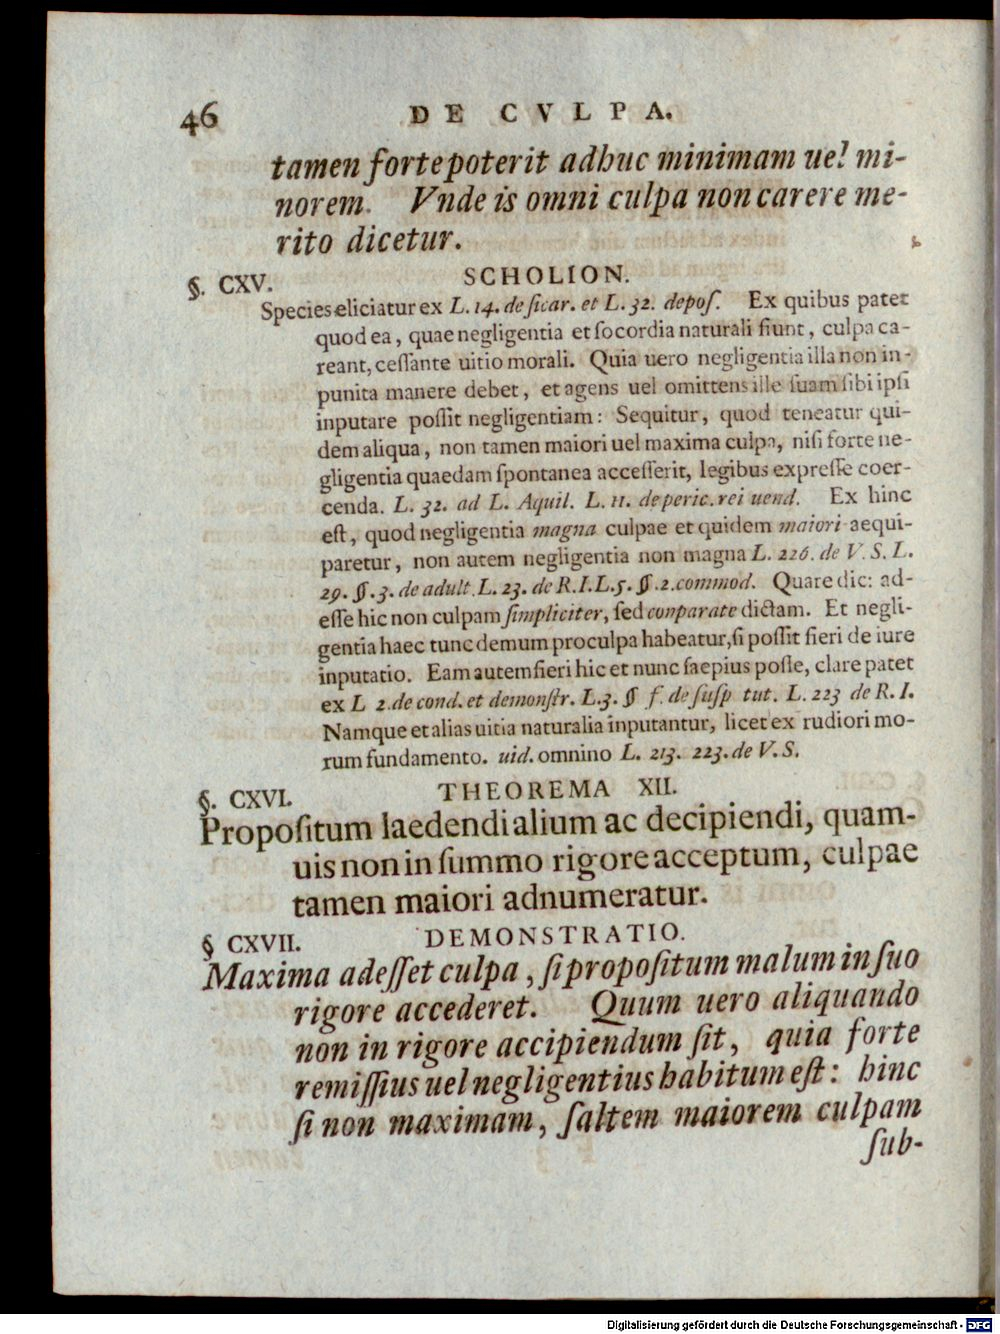 46 DE CVLPA.
tamen forte poterit adhuc minimam uel mi-
norem. Vnde is omni culpa non carere me-
rito dicetur.
§. CXV. SCHOLION.
Species eliciatur ex L. 14. de ſicar. et L. 32. depoſ. Ex quibus patet
quod ea, quae negligentia et ſocordia naturali fiunt, culpa ca-
reant, ceſſante uitio morali. Quia uero negligentia illa non in-
punita manere debet, et agens uel omittens ille ſuam ſibi ipſi
inputare poſſit negligentiam: Sequitur, quod teneatur qui-
dem aliqua, non tamen maiori uel maxima culpa, niſi forte ne-
gligentia quaedam ſpontanea acceſſerit, legibus expreſſe coer-
cenda. L. 32. ad L. Aquil. L. 11. de peric. rei uend. Ex hinc
eſt, quod negligentia magna culpae et quidem maiori aequi-
paretur, non autem negligentia non magna L. 226. de V. S. L.
29. §. 3. de adult. L. 23. de R. I. L. 5. §. 2. commod. Quare dic: ad-
eſſe hic non culpam ſimpliciter, ſed conparate dictam. Et negli-
gentia haec tunc demum pro culpa habeatur, ſi poſſit fieri de iure
inputatio. Eam autem fieri hic et nunc ſaepius poſſe, clare patet
ex L 2. de cond. et demonſtr. L. 3. § f. de ſuſp tut. L. 223 de R. I.
Namque et alias uitia naturalia inputantur, licet ex rudiori mo-
rum fundamento. uid. omnino L. 213. 223. de V. S.
§. CXVI. THEOREMA XII.
Propoſitum laedendi alium ac decipiendi, quam-
uis non in ſummo rigore acceptum, culpae
tamen maiori adnumeratur.
§ CXVII. DEMONSTRATIO.
Maxima adeſſet culpa, ſi propoſitum malum in ſuo
rigore accederet. Quum uero aliquando
non in rigore accipiendum ſit, quia forte
remiſſius uel negligentius habitum eſt: hinc
ſi non maximam, ſaltem maiorem culpam
ſub-
Digitalisierung gefördert durch die Deutsche Forschungsgemeinschaft - DFG